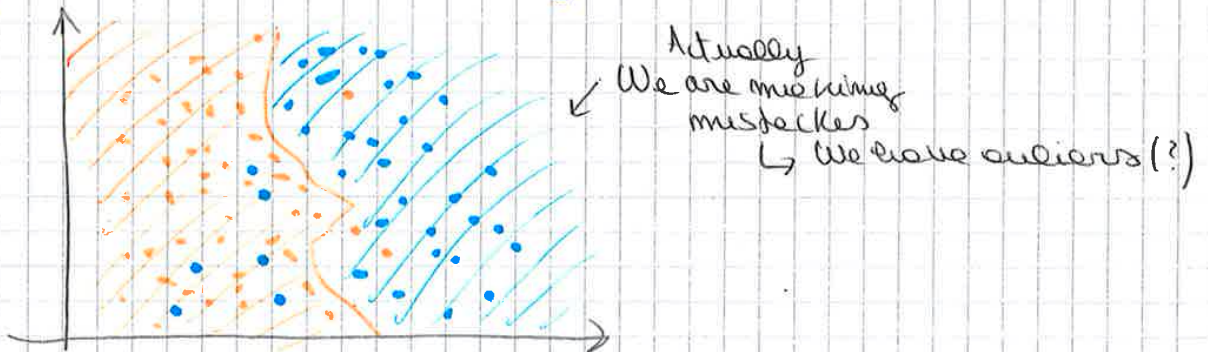 Actually
We are mecking
misteckes
↳ We have outliers (?)